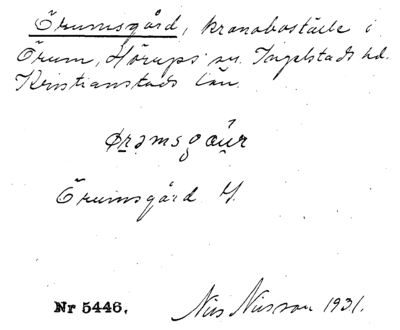 Örumsgård, kronoboställe i
Örum, Hörups sn. Ingelstads hd.
Kristianstads län.
ørəmsgåu̯r
Örumsgård
Nr 5446. Nils Nilsson 1931.